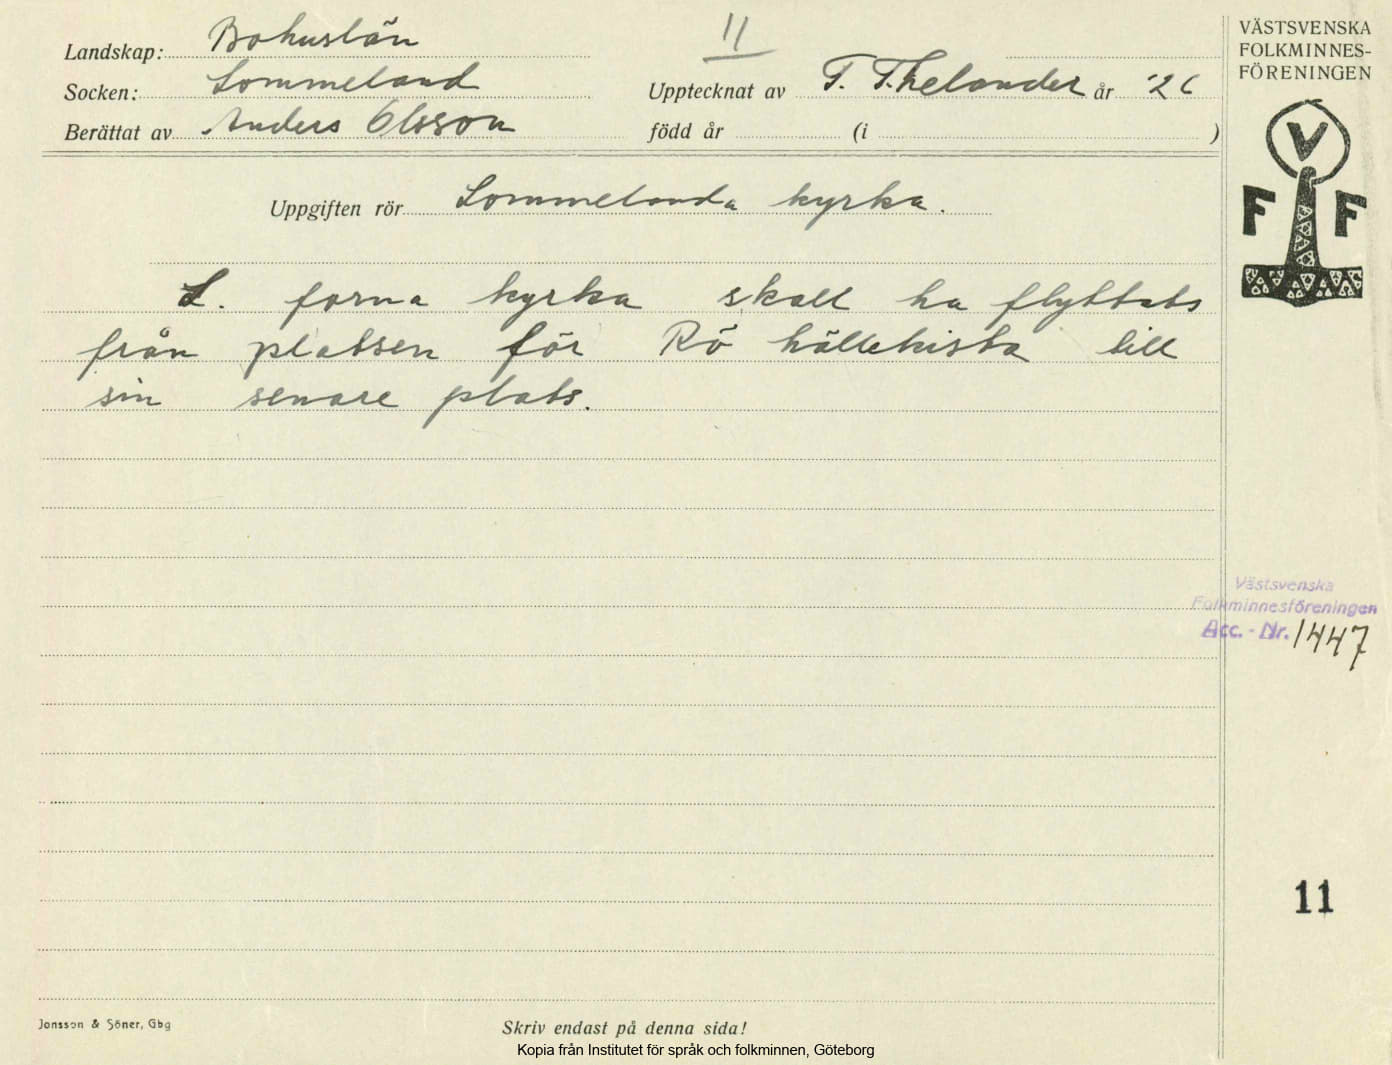 Landskap: Bohuslän
11
Socken: Lommeland
Upptecknat av T. Thelander år '26
Berättat av Anders Olsson
född år (i )
Uppgiften rör Lommelanda kyrka.
L. forna kyrka skall ha flyttats
från platsen för Rö hällekista till
sin senare plats.
VÄSTSVENSKA
FOLKMINNES-
FÖRENINGEN
V
F F
Västsvenska
Folkminnesföreningen
Acc.-Nr. 1447
11
Jonsson & Söner, Gbg
Skriv endast på denna sida!
Kopia från Institutet för språk och folkminnen, Göteborg